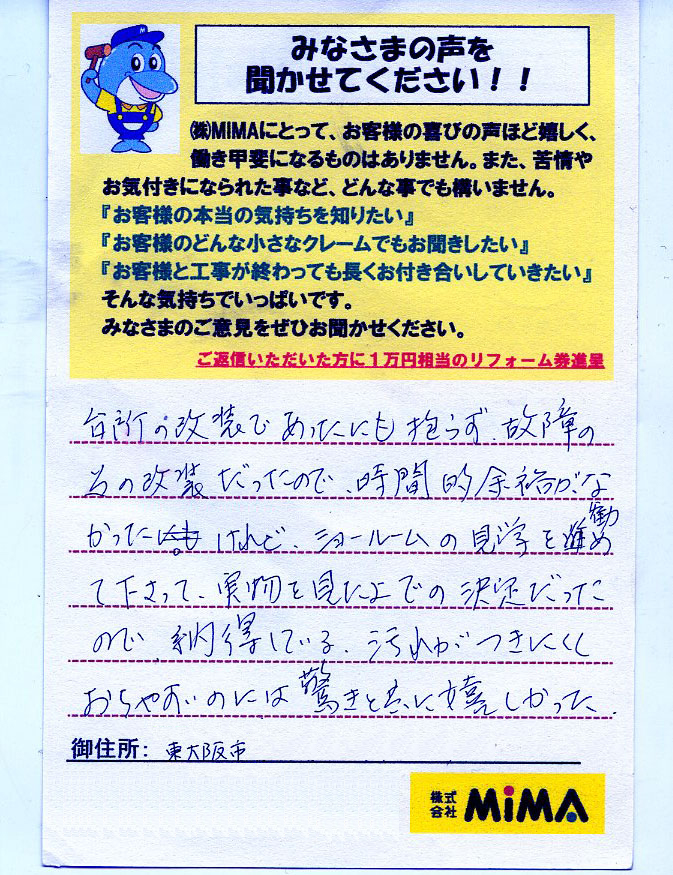 みなさまの声を
聞かせてください！！
㈱MIMAにとって、お客様の喜びの声ほど嬉しく、
働き甲斐になるものはありません。また、苦情や
お気付きになられた事など、どんな事でも構いません。
『お客様の本当の気持ちを知りたい』
『お客様のどんな小さなクレームでもお聞きしたい』
『お客様と工事が終わっても長くお付き合いしていきたい』
そんな気持ちでいっぱいです。
みなさまのご意見をぜひお聞かせください。
ご返信いただいた方に１万円相当のリフォーム券進呈
台所の改装であったにも抱らず、故障の
為の改装だったので、時間的余裕がな
かった けれど、ショールームの見学を勧め
て下さって、実物を見た上での決定だった
ので、納得している。汚れがつきにくく
おちやすいのには驚きと共に嬉しかった。
御住所: 東大阪市
株式会社 MiMA
M